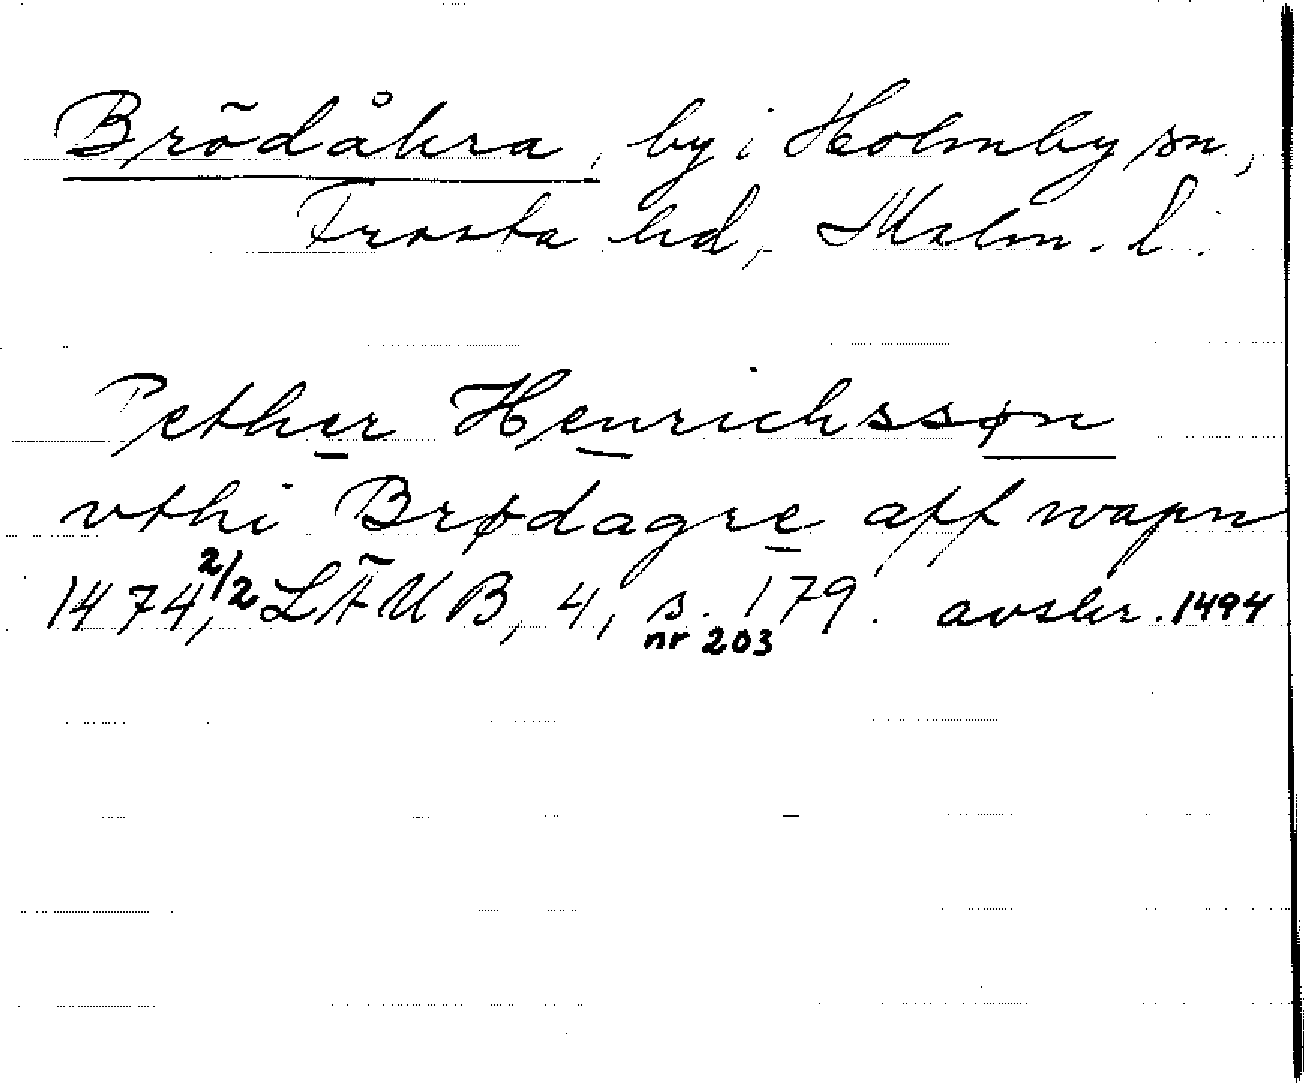 Brödåkra, by i Holmby sn,
Frosta hd, Malm. l.
Pether Henrichssøn
vthi Brødagre aff wapn
1474, 2/2 LÄUB, 4, s. 179. avskr. 1494
nr 203